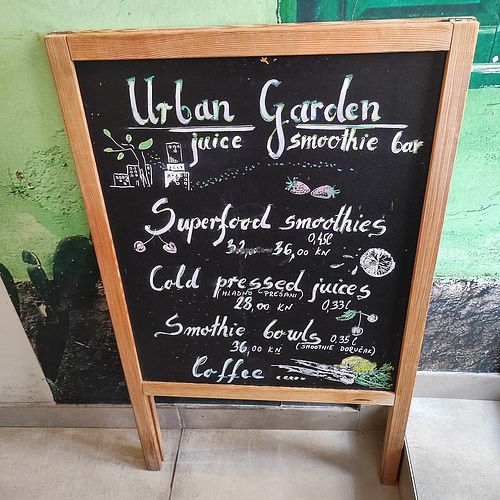 Urban Garden
juice smoothie bar
Superfood smoothies
32 - 36,00 KN 0,45l
Cold pressed juices
(HLADNO PREŠANI)
28,00 KN 0,33l
Smothie bowls 0,35l
36,00 KN (SMOOTHIE DORUČAK)
Coffee .....